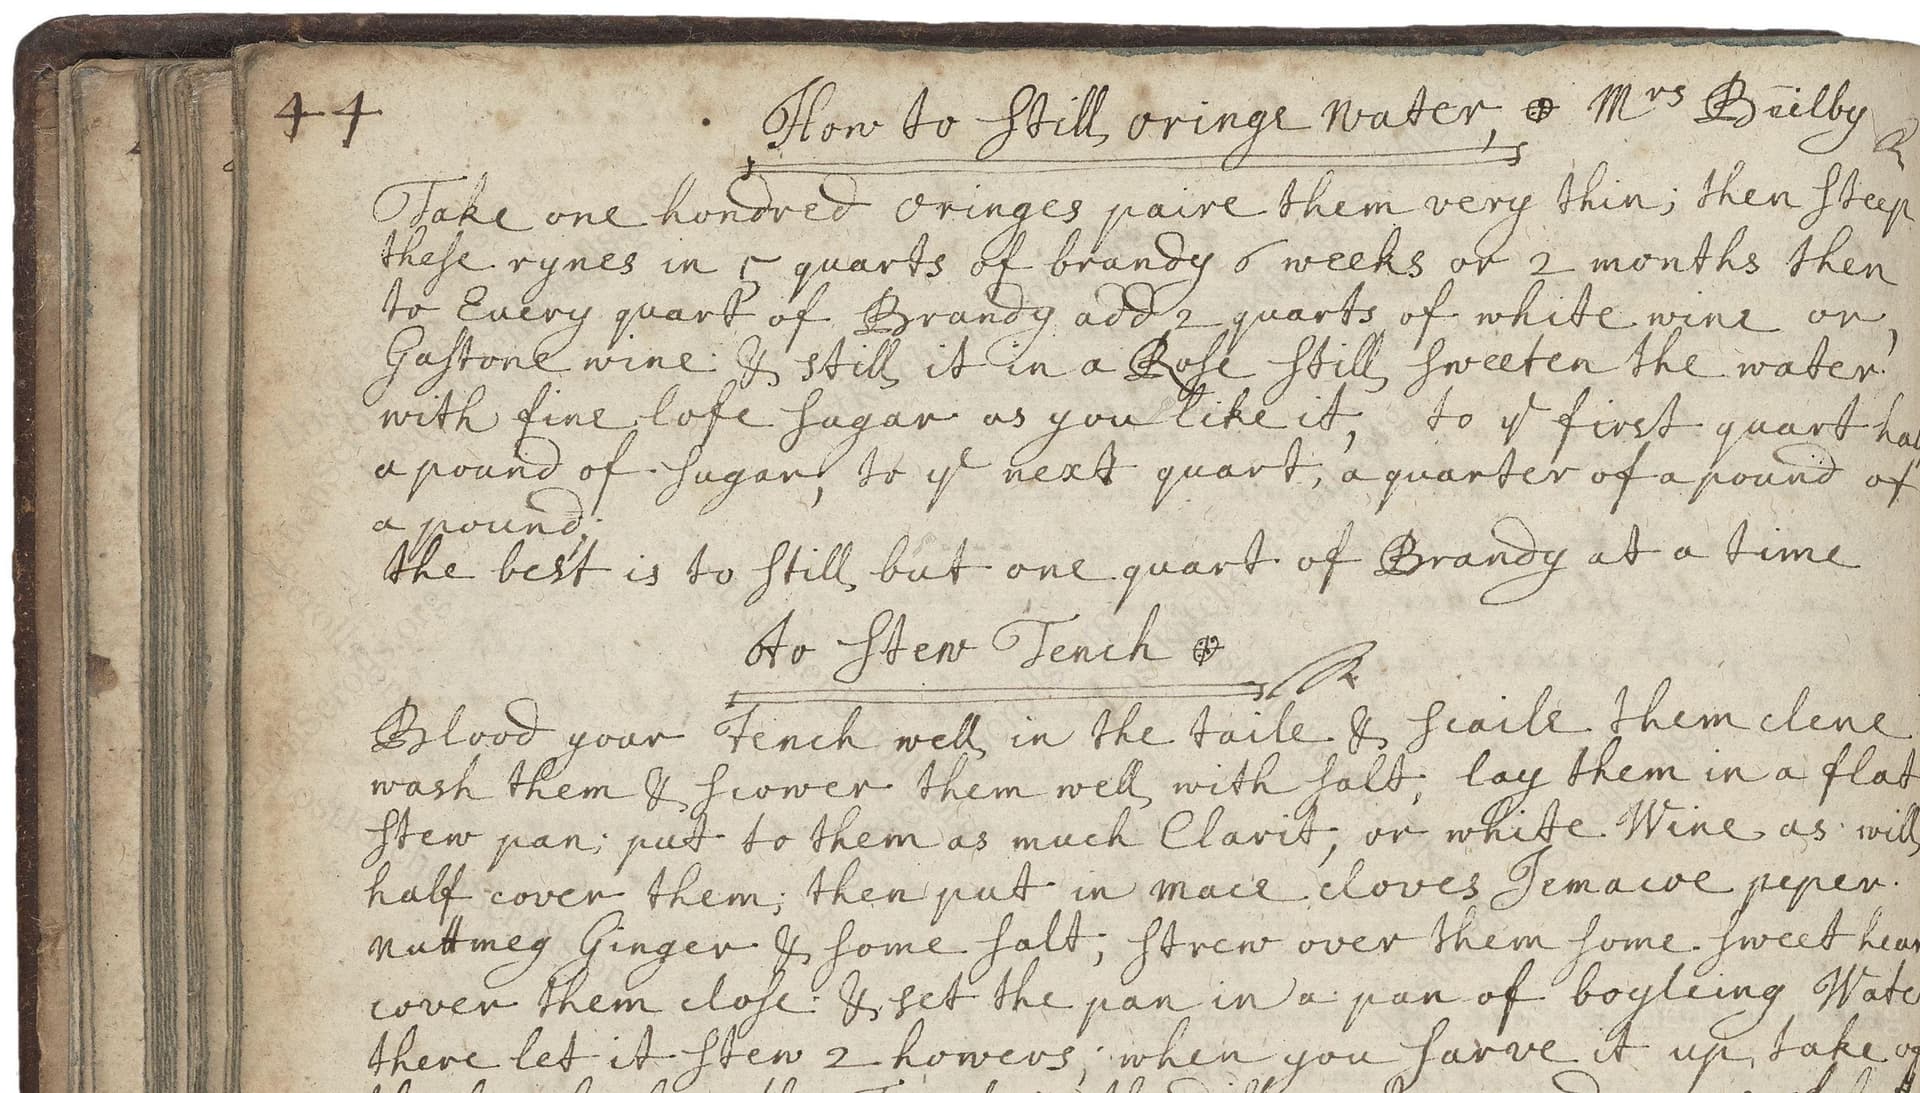 44
How to still oringe water, Mrs Builby
Take one hondred oringes paire them very thin; then steep
these rynes in 5 quarts of brandy 6 weeks or 2 months then
to Every quart of Brandy add 2 quarts of white wine or,
Gastone wine: & still it in a Rose still sweeten the water
with fine lofe sugar as you like it, to ye first quart
a pound of sugar, to ye next quart, a quarter of a pound of
a pound;
the best is to still but one quart of Brandy at a time
to stew Tench
Blood your Tench well in the taile & scaile them clene
wash them & scower them well with salt; lay them in a flat
stew pan; put to them as much Clarit, or white Wine as will
half cover them; then put in mace cloves Jemacoe peper
nuttmeg Ginger & some salt; strew over them some sweet
cover them close: & set the pan in a pan of boyleing
there let it stew 2 howers; when you sarve it up, take